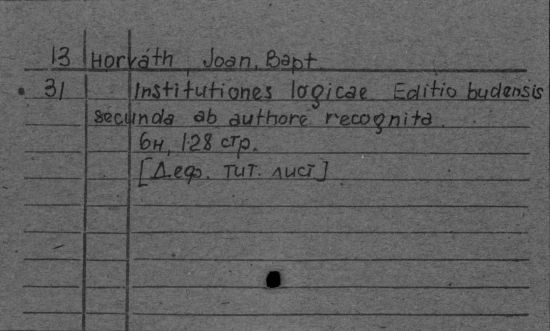 13 Horváth, Joan, Bapt
31 Institutiones logicae Editio budensis
secunda ab authore recognita.
6н, 128 стр.
[Деф. тит. лист]